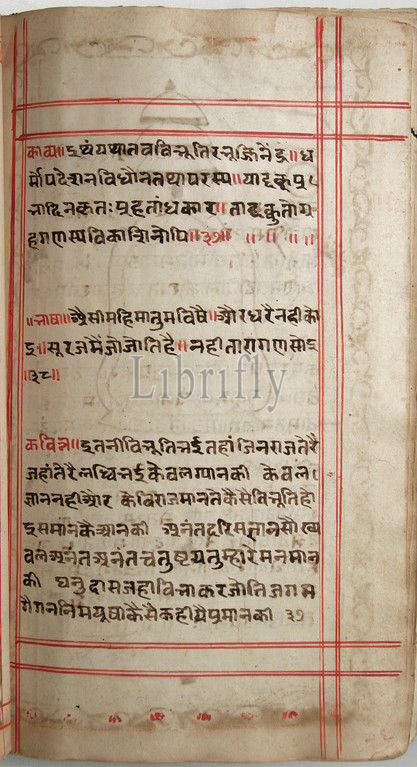 काव्य॥ इथंयथातवविभूतिरभूज्जिनेंद्र॥ ध
र्मोपदेशनविधौनतथापरस्य॥ यादृकप्र
भादिनकृतःप्रहतांधकारा॥ तादृक्कुतोग्र
हगणस्यविकाशिनोपि॥३७॥ ॥ ॥ ॥ ॥
॥भाषा॥ औसीमहिमातुमविषै॥ औरधरैनहीको
इ॥ सूरजमैंजोजोतिहै॥ नहीतारागणसोइ
॥३८॥
Librifly
कवित्त॥ इतनीविभूतिभईतहांजिनराजतेरै
जहांतेरैलब्धिभईकेवलग्यानकी केवल
ज्ञाननहीऔर केविराजमानतैकैसेविभूतिहो
इसमानकैआनकी अनंतदरिसज्ञानसौख्य
बलअनंतअनंतचतुष्टयतुम्हारेमनमान
की धनुदासजहाविभाकरजोतिजगम
गैगननिमयूषाकैसैकहीयैप्रमानकी ३७